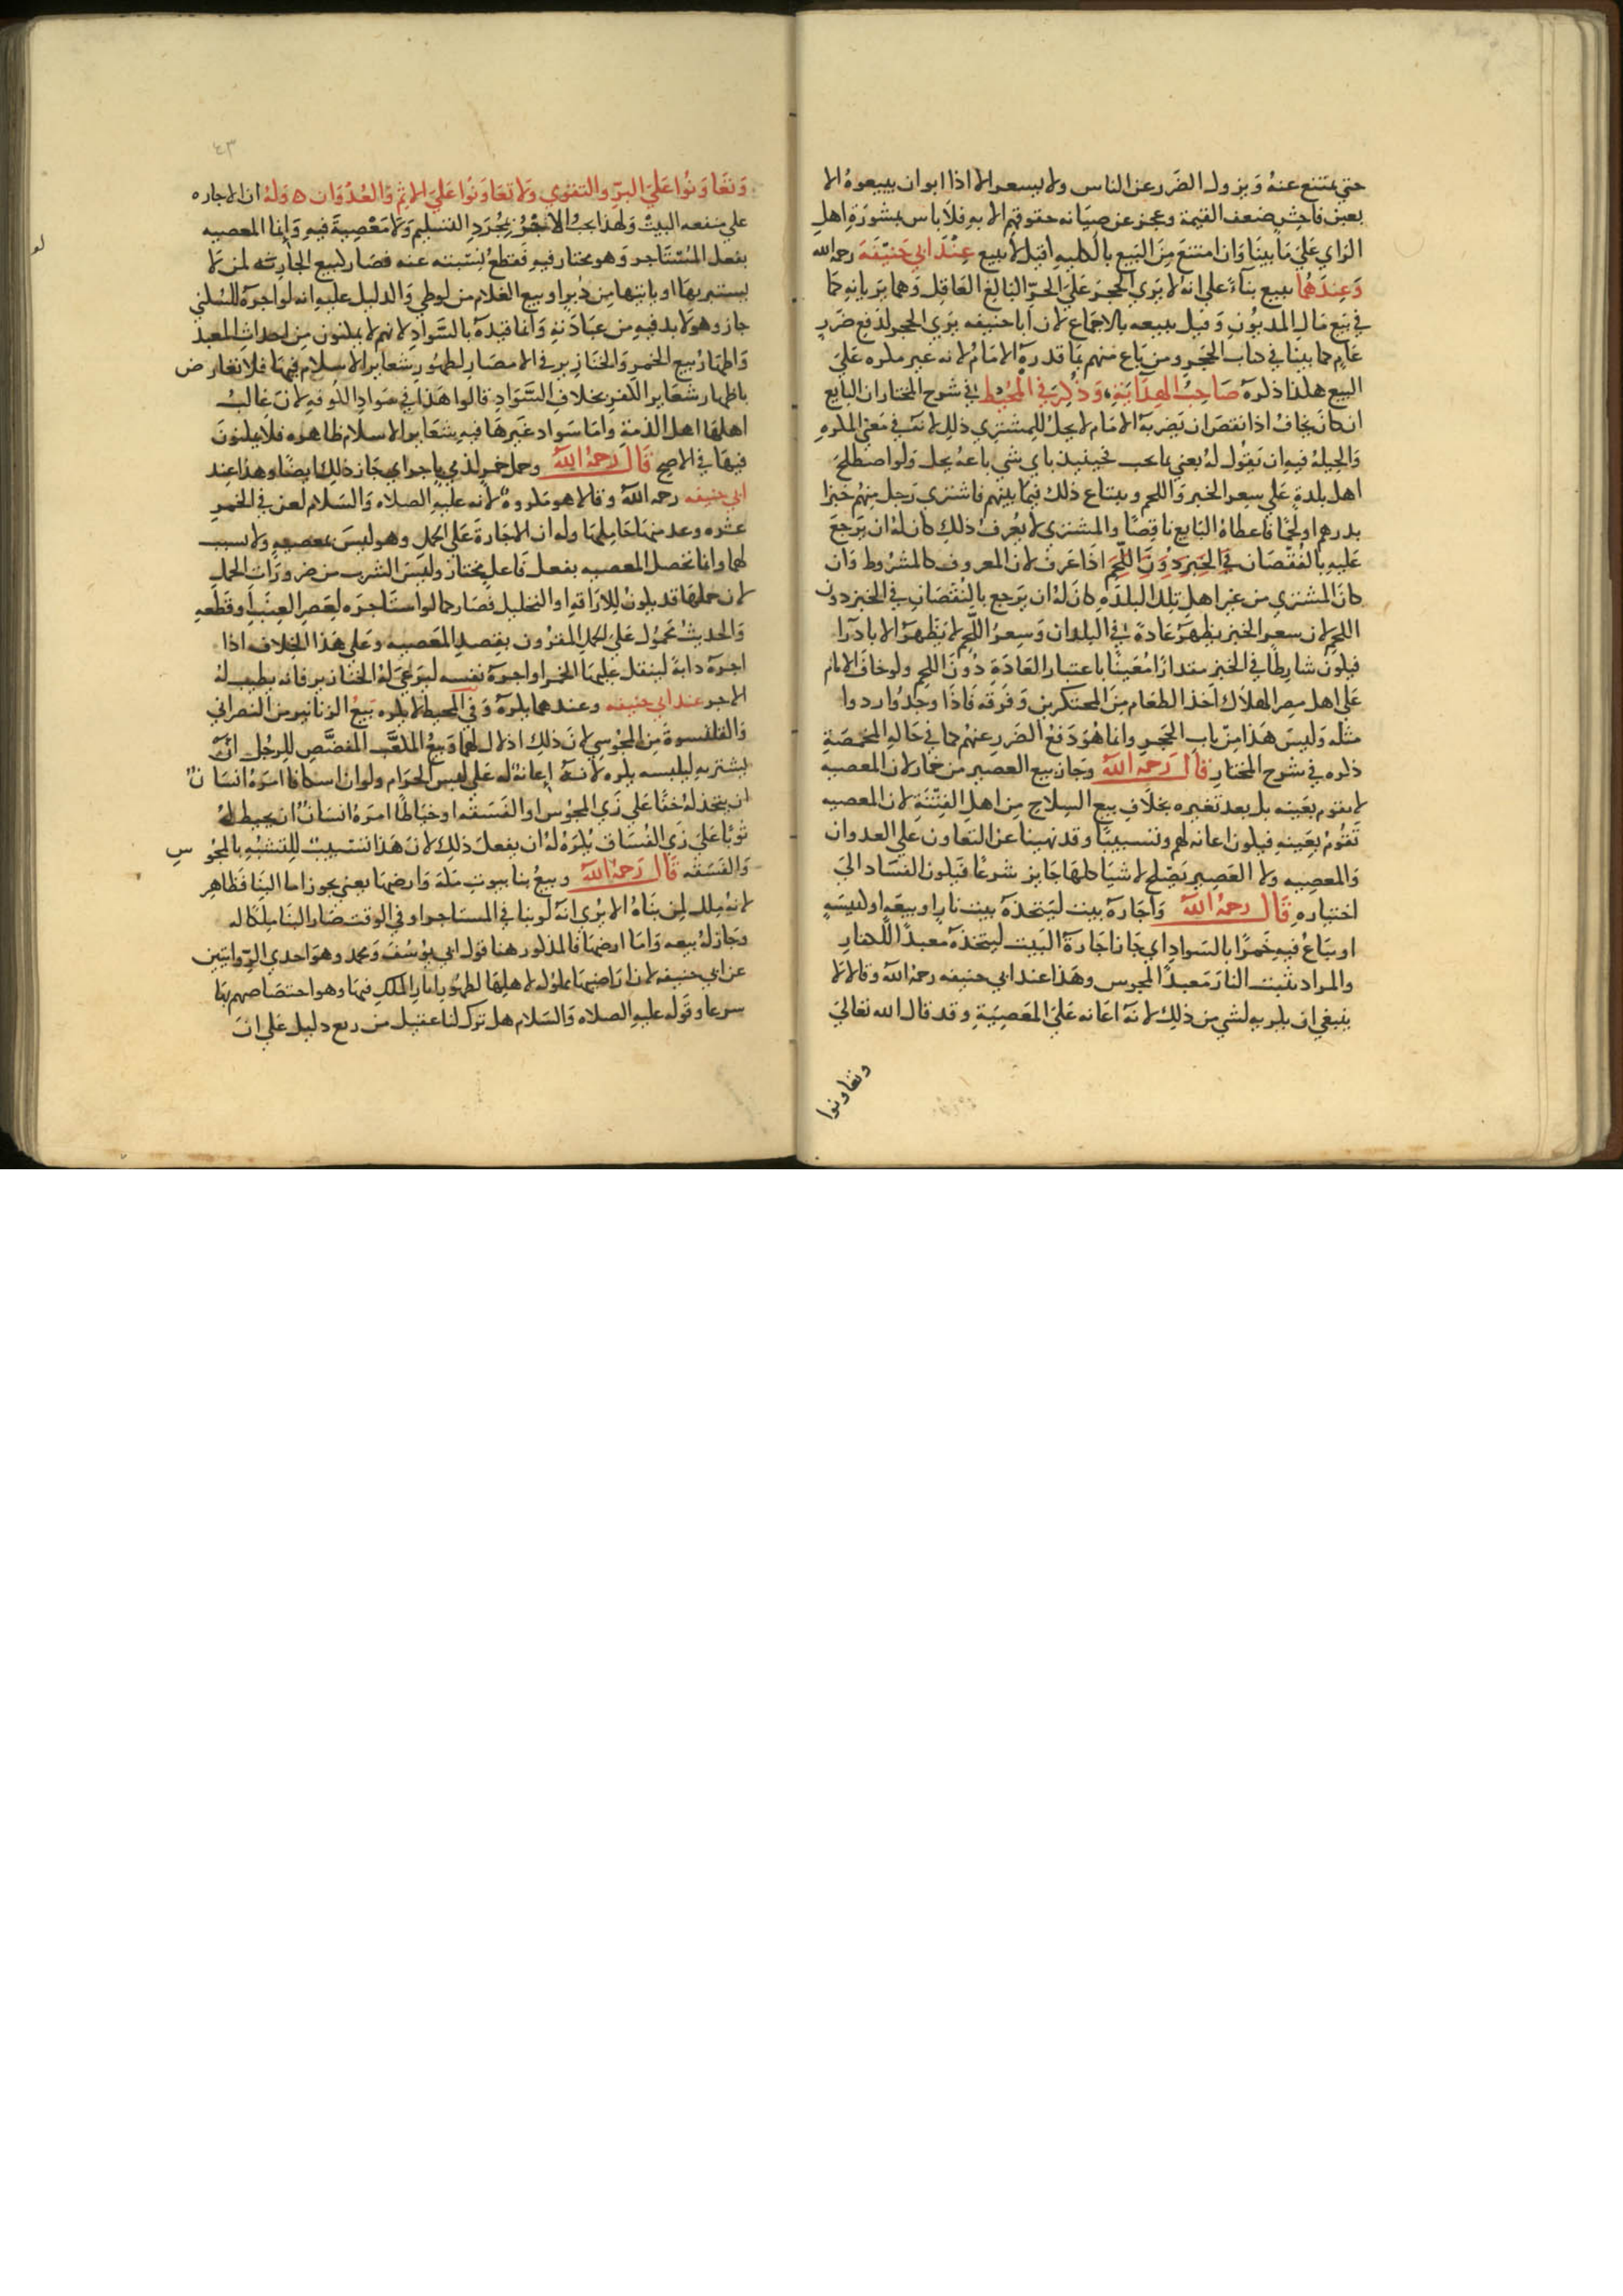 حتي يمتنع عنه ويزول الضرر عن الناس ولا يسعر الا اذا ابوان يبيعوه الا
بغبن فاحش ضعف القيمة وعجز عن صيانه حقوقهم الا به فلا باس بمشورة اهل
الراي علي ما بينا وان امتنع من البيع بالكليه اقيل لا يبيع عند ابي حنيفة رحمه الله
وعندهما يبيع بناء علي انه لا يري الحجر علي الحر البالغ العاقل وهما يريانه كما
في بيع مال المديون وقيل يبيعه بالاجماع لان ابا حنيفه يري الحجر لدفع ضرر
عام كما بينا في كتاب الحجر ومن باع منهم بما قدره الامام لانه غير مكره علي
البيع هكذا ذكره صاحب الهداية وذكر في المحيط في شرح المختار ان البايع
ان كان يخاف اذا نقص ان يضربه الامام لا يحل للمشتري ذلك لانه في معني المكره
والحيله فيه ان يقول له بعني بما تحب فحينيذ باي شي باعه يحل ولو اصطلح
اهل بلدة علي سعر الخبز واللحم وشاع ذلك فيما بينهم فاشتري رجل منهم خبزا
بدرهم او لحما فاعطاه البايع ناقصا والمشتري لا يعرف ذلك كان له ان يرجع
عليه بالنقصان في الخبز دون اللحم اذا عرف لان المعروف كالمشروط وان
كان المشتري من غير اهل تلك البلدة كان له ان يرجع بالنقصان في الخبز دون
اللحم لان سعر الخبز يظهر عادة في البلدان وسعر اللحم لا يظهر الا نادرا
فيكون شارطا في الخبز مقدارا معينا باعتبار العادة دون اللحم ولو خاف الامام
علي اهل مصر الهلاك اخذ الطعام من المحتكرين وفرقه فاذا وجدوا ردوا
مثله وليس هذا من باب الحجر وانما هو دفع الضرر عنهم كما في حاله المخمصة
ذكره في شرح المختار قال رحمه الله وجاز بيع العصير من خمار لان المعصيه
لا تقوم بعينه بل بعد تغيره بخلاف بيع السلاح من اهل الفتنة لان المعصيه
تقوم بعينه فيكون اعانه لهم وتسبيبا وقد نهينا عن التعاون علي العدوان
والمعصيه ولا العصير يصلح لاشيا كلها جايز شرعا فيكون الفساد الي
اختياره قال رحمه الله واجارة بيت ليتخذه بيت نار او بيعة او كنيسة
او يباع فيه خمرا بالسواد اي جاز اجارة البيت ليتخذه معبدا للكفار
والمراد ببيت النار معبد المجوس وهذا عند ابي حنيفه رحمه الله وقالا لا
ينبغي ان يكريه لشي من ذلك لانه اعانه علي المعصية وقد قال الله تعالي
وتعاونوا
٤٣
وتعاونوا علي البر والتقوي ولا تعاونوا علي الاثم والعدوان ه وله ان الاجاره
علي منفعه البيت ولهذا يجب الاجر بمجرد التسليم ولا معصية فيه وانما المعصيه
بفعل المستاجر وهو مختار فيه فقطع نسبته عنه فصار كبيع الجارية لمن لا
يستبريها او ياتيها من دبر او بيع الغلام من لوطي والدليل عليه انه لو اجره للسكني
جاز وهو لا بد فيه من عبادته وانما قيده بالسواد لانهم لا يمكنون من احداث المعبد
واظهار بيع الخمر والخنازير في الامصار لظهور شعاير الاسلام فيها فلا تعارض
باظهار شعاير الكفر بخلاف السواد قالوا هذا في سواد الكوفه لان غالب
اهلها اهل الذمة واما سواد غيرها فيه شعاير الاسلام ظاهره فلا يمكنون
فيها في الاصح قال رحمه الله وحمل خمر لذمي باجر اي جاز ذلك ايضا وهذا عند
ابي حنيفه رحمه الله وقالا هو مكروه لانه عليه الصلاه والسلام لعن في الخمر
عشره وعد منها حاملها وله ان الاجارة علي الحمل وهو ليس بمعصيه ولا سبب
لها وانما تحصل المعصيه بفعل فاعل مختار وليس الشرب من ضرورات الحمل
لان حملها قد يكون للاراقه او التخليل فصار كما لو استاجره لعصر العنب او قطعه
والحديث محمول علي الحمل المقرون بقصد المعصيه وعلي هذا الخلاف اذا
اجره دابة لينقل عليها الخمر او اجره نفسه ليرعي له الخنازير فانه يطيب له
الاجر عند ابي حنيفه وعندهما يكره وفي المحيط لا يكره بيع الزنانير من النصراني
والقلنسوة من المجوسي لان ذلك اذلال لهما وبيع المكعب المفضض للرجل انه
يشتريه ليلبسه يكره لانه اعانة له علي لبس الحرام ولو ان اسكافا امره انسان
ان يتخذ له خفا علي زي المجوس او الفسقه او خياطا امره انسان ان يخيط له
ثوبا علي زي الفساق يكره له ان يفعل ذلك لان هذا تسبيب للتشبه بالمجوس
والفسقه قال رحمه الله وبيع بنا بيوت مكة وارضها يعني يجوز اما البنا فظاهر
لانه ملك لمن بناه الا يري انه لو بنا في المستاجر او في الوقف صار البنا ملكا له
وجاز له بيعه واما ارضها فالمذكور هنا قول ابي يوسف ومحمد وهو احدي الروايتين
عن ابي حنيفه لان اراضيها مملوكه لاهلها لظهور اثار الملك فيها وهو اختصاصهم بها
شرعا وقوله عليه الصلاه والسلام هل ترك لنا عقيل من ربع دليل علي ان